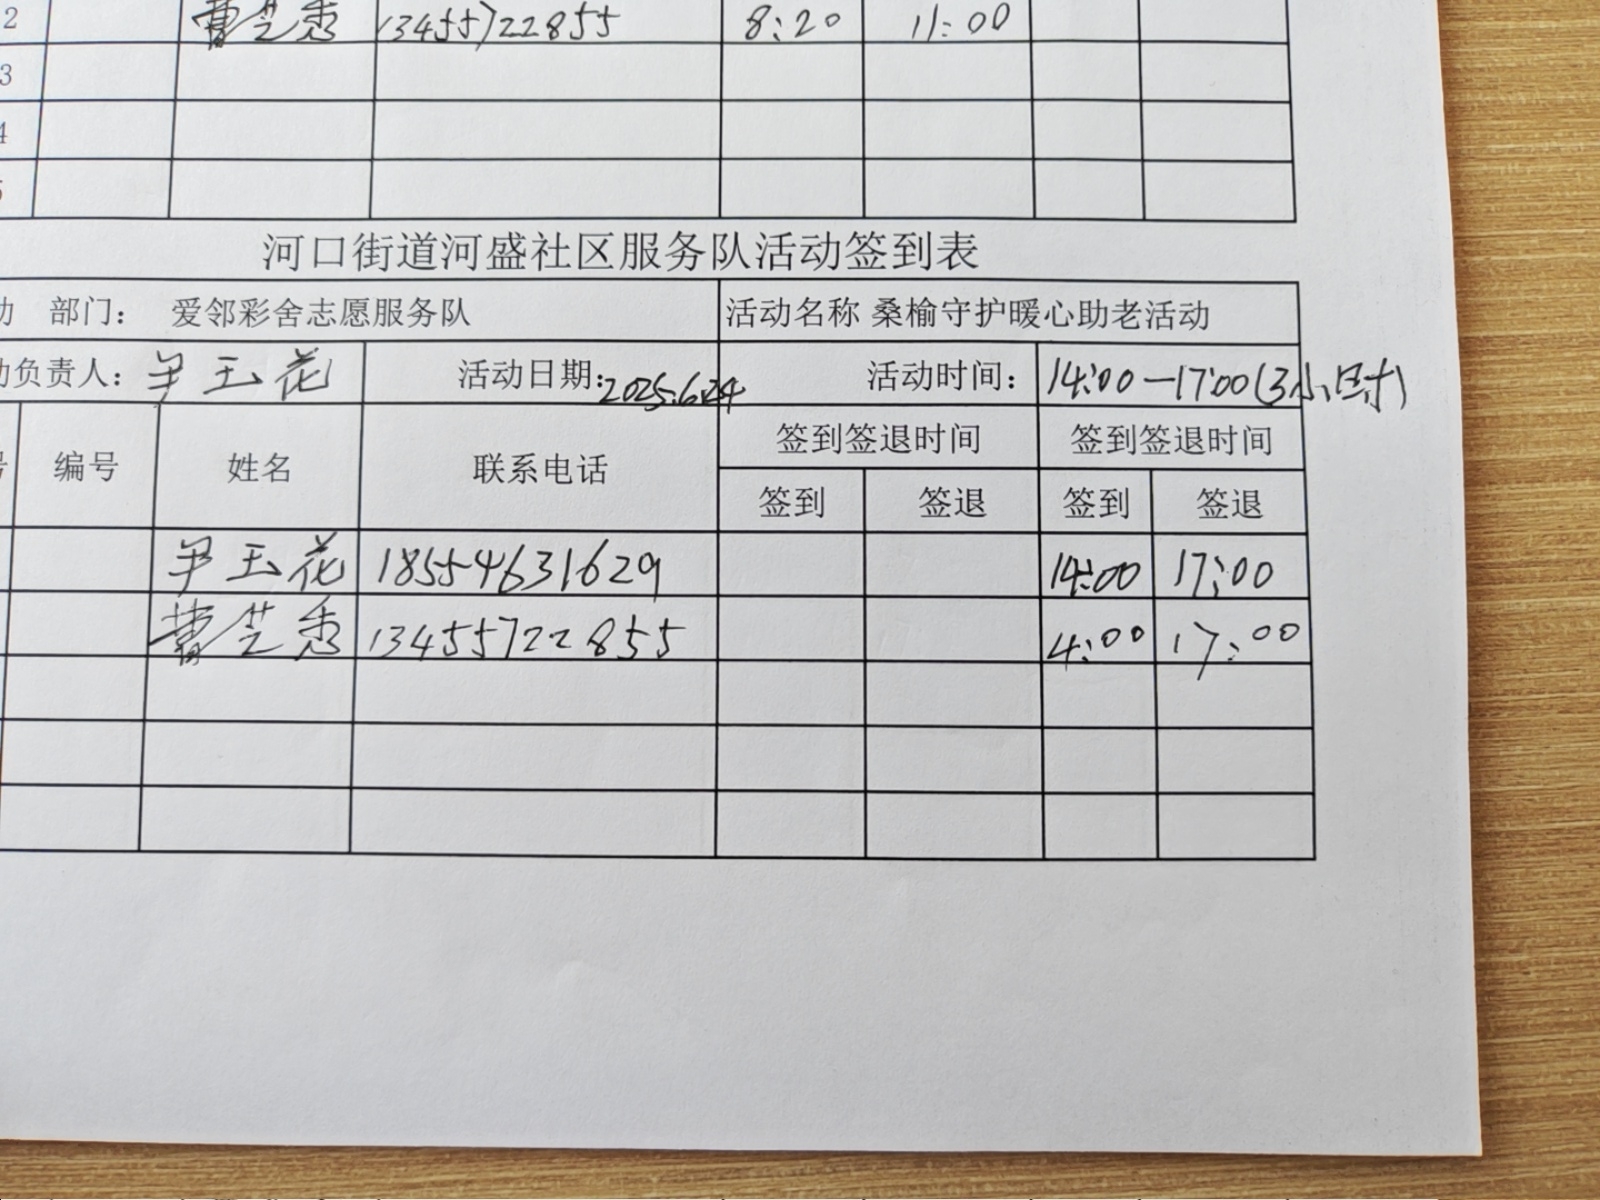 2 曹芝秀 13455722855 8:20 11:00
3
4
5
河口街道河盛社区服务队活动签到表
动 部门： 爱邻彩舍志愿服务队 活动名称 桑榆守护暖心助老活动
动负责人：尹玉花 活动日期：2025.6.24 活动时间： 14:00—17:00(3小时)
号 编号 姓名 联系电话 签到签退时间 签到签退时间
签到 签退 签到 签退
尹玉花 18554631629 14:00 17:00
曹芝秀 13455722855 4:00 17:00